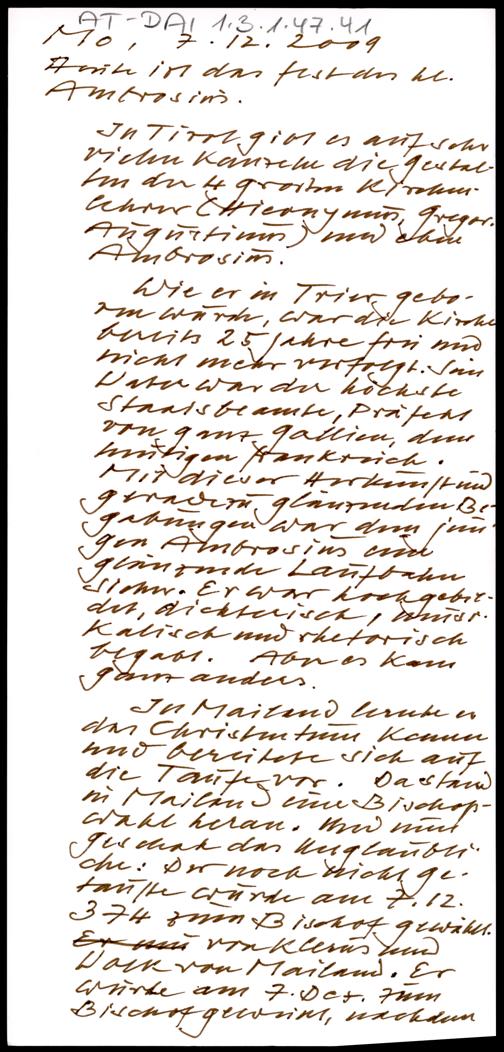 AT-DAI 1.3.1.47.41
Mo, 7.12.2009
Heute ist das Fest des hl.
Ambrosius.
In Tirol gibt es auf sehr
vielen Kanzeln die Gestal-
ten der 4 großen Kirchen-
lehrer (Hieronymus, Gregor,
Augustinus) und eben
Ambrosius.
Wie er in Trier gebo-
ren wurde, war die Kirche
bereits 25 Jahre frei und
nicht mehr verfolgt. Sein
Vater war der höchste
Staatsbeamte, Präfekt
von ganz Gallien, dem
heutigen Frankreich.
Mit dieser Herkunft und
geradezu glänzenden Be-
gabungen war dem jun-
gen Ambrosius eine
glänzende Laufbahn
sicher. Er war hochgebil-
det, dichterisch, musi-
kalisch und rhetorisch
begabt. Aber es kam
ganz anders.
In Mailand lernte er
das Christentum kennen
und bereitete sich auf
die Taufe vor. Da stand
in Mailand eine Bischofs-
wahl heran. Und nun
geschah das Unglaubli-
che: Der noch nicht ge-
taufte wurde am 7.12.
374 zum Bischof gewählt.
Er von Klerus und
Volk von Mailand. Er
wurde am 7. Dez. zum
Bischof geweiht, nachdem